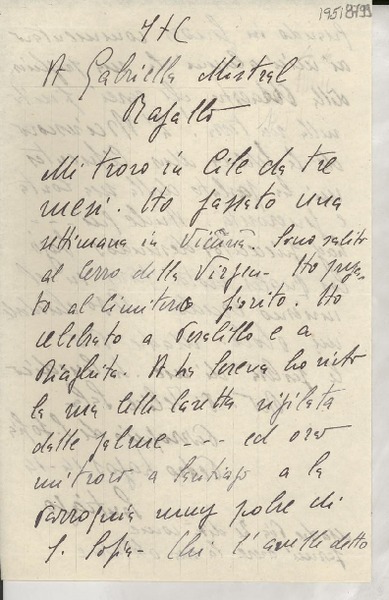 1951
A Gabriella Mistral
Rapallo
Mi trovo in Cile da tre
mesi. Ho passato una
settimana in Vicuña. Sono salito
al Cerro della Virgen - Ho prega-
to al Cimitero fiorito. Ho
celebrato a Peralillo e a
Diaguita. A La Serena ho visto
la sua bella casetta vigilata
dalle palme --- ed ora
mi trovo a Santiago a la
Parroquia muy pobre di
S. Sofia - Chi l'avrebbe detto